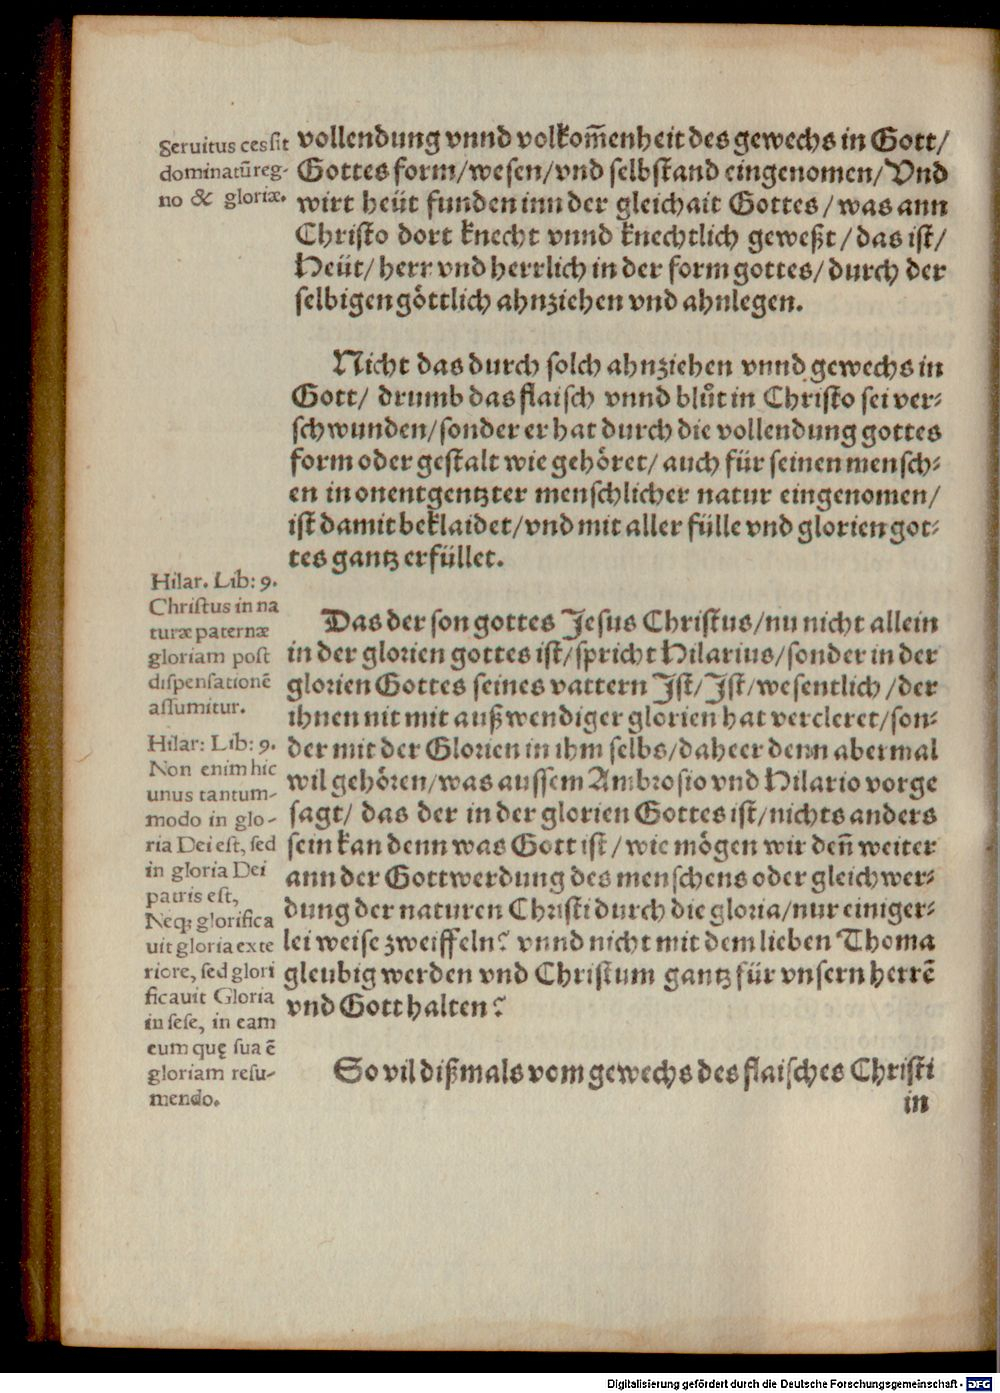 Seruitus cessit
dominatū reg-
no & gloriæ.
vollendung vnnd volkom̄enheit des gewechs in Gott/
Gottes form/wesen/vnd selbstand eingenomen/Vnd
wirt heüt funden inn der gleichait Gottes/was ann
Christo dort knecht vnnd knechtlich geweßt/das ist/
Heüt/herr vnd herrlich in der form gottes/durch der
selbigen göttlich ahnziehen vnd ahnlegen.
Nicht das durch solch ahnziehen vnnd gewechs in
Gott/ drumb das flaisch vnnd blůt in Christo sei ver⸗
schwunden/sonder er hat durch die vollendung gottes
form oder gestalt wie gehöret/auch für seinen mensch⸗
en in onentgentzter menschlicher natur eingenomen/
ist damit beklaidet/vnd mit aller fülle vnd glorien got⸗
tes gantz erfüllet.
Hilar. Lib: 9.
Christus in na
turæ paternæ
gloriam post
dispensationē
assumitur.
Hilar: Lib: 9.
Non enim hic
unus tantum-
modo in glo-
ria Dei est, sed
in gloria Dei
patris est,
Neq; glorifica
uit gloria exte
riore, sed glori
ficauit Gloria
in sese, in eam
eum quę sua ē
gloriam resu-
mendo.
Das der son gottes Jesus Christus/nu nicht allein
in der glorien gottes ist/spricht Hilarius/sonder in der
glorien Gottes seines vattern Ist/Ist/wesentlich/der
ihnen nit mit außwendiger glorien hat vercleret/son⸗
der mit der Glorien in ihm selbs/daher er denn abermal
wil gehören/was aussem Ambrosio vnd Hilario vorge
sagt/ das der in der glorien Gottes ist/nichts anders
sein kan denn was Gott ist/wie mögen wir den̄ weiter
ann der Gottwerdung des menschens oder gleichwer⸗
dung der naturen Christi durch die gloria/nur einiger⸗
lei weise zweiffeln? vnnd nicht mit dem lieben Thoma
gleubig werden vnd Christum gantz für vnsern herrē
vnd Gott halten?
So vil dißmals vom gewechs des flaisches Christi
in
Digitalisierung gefördert durch die Deutsche Forschungsgemeinschaft - DFG